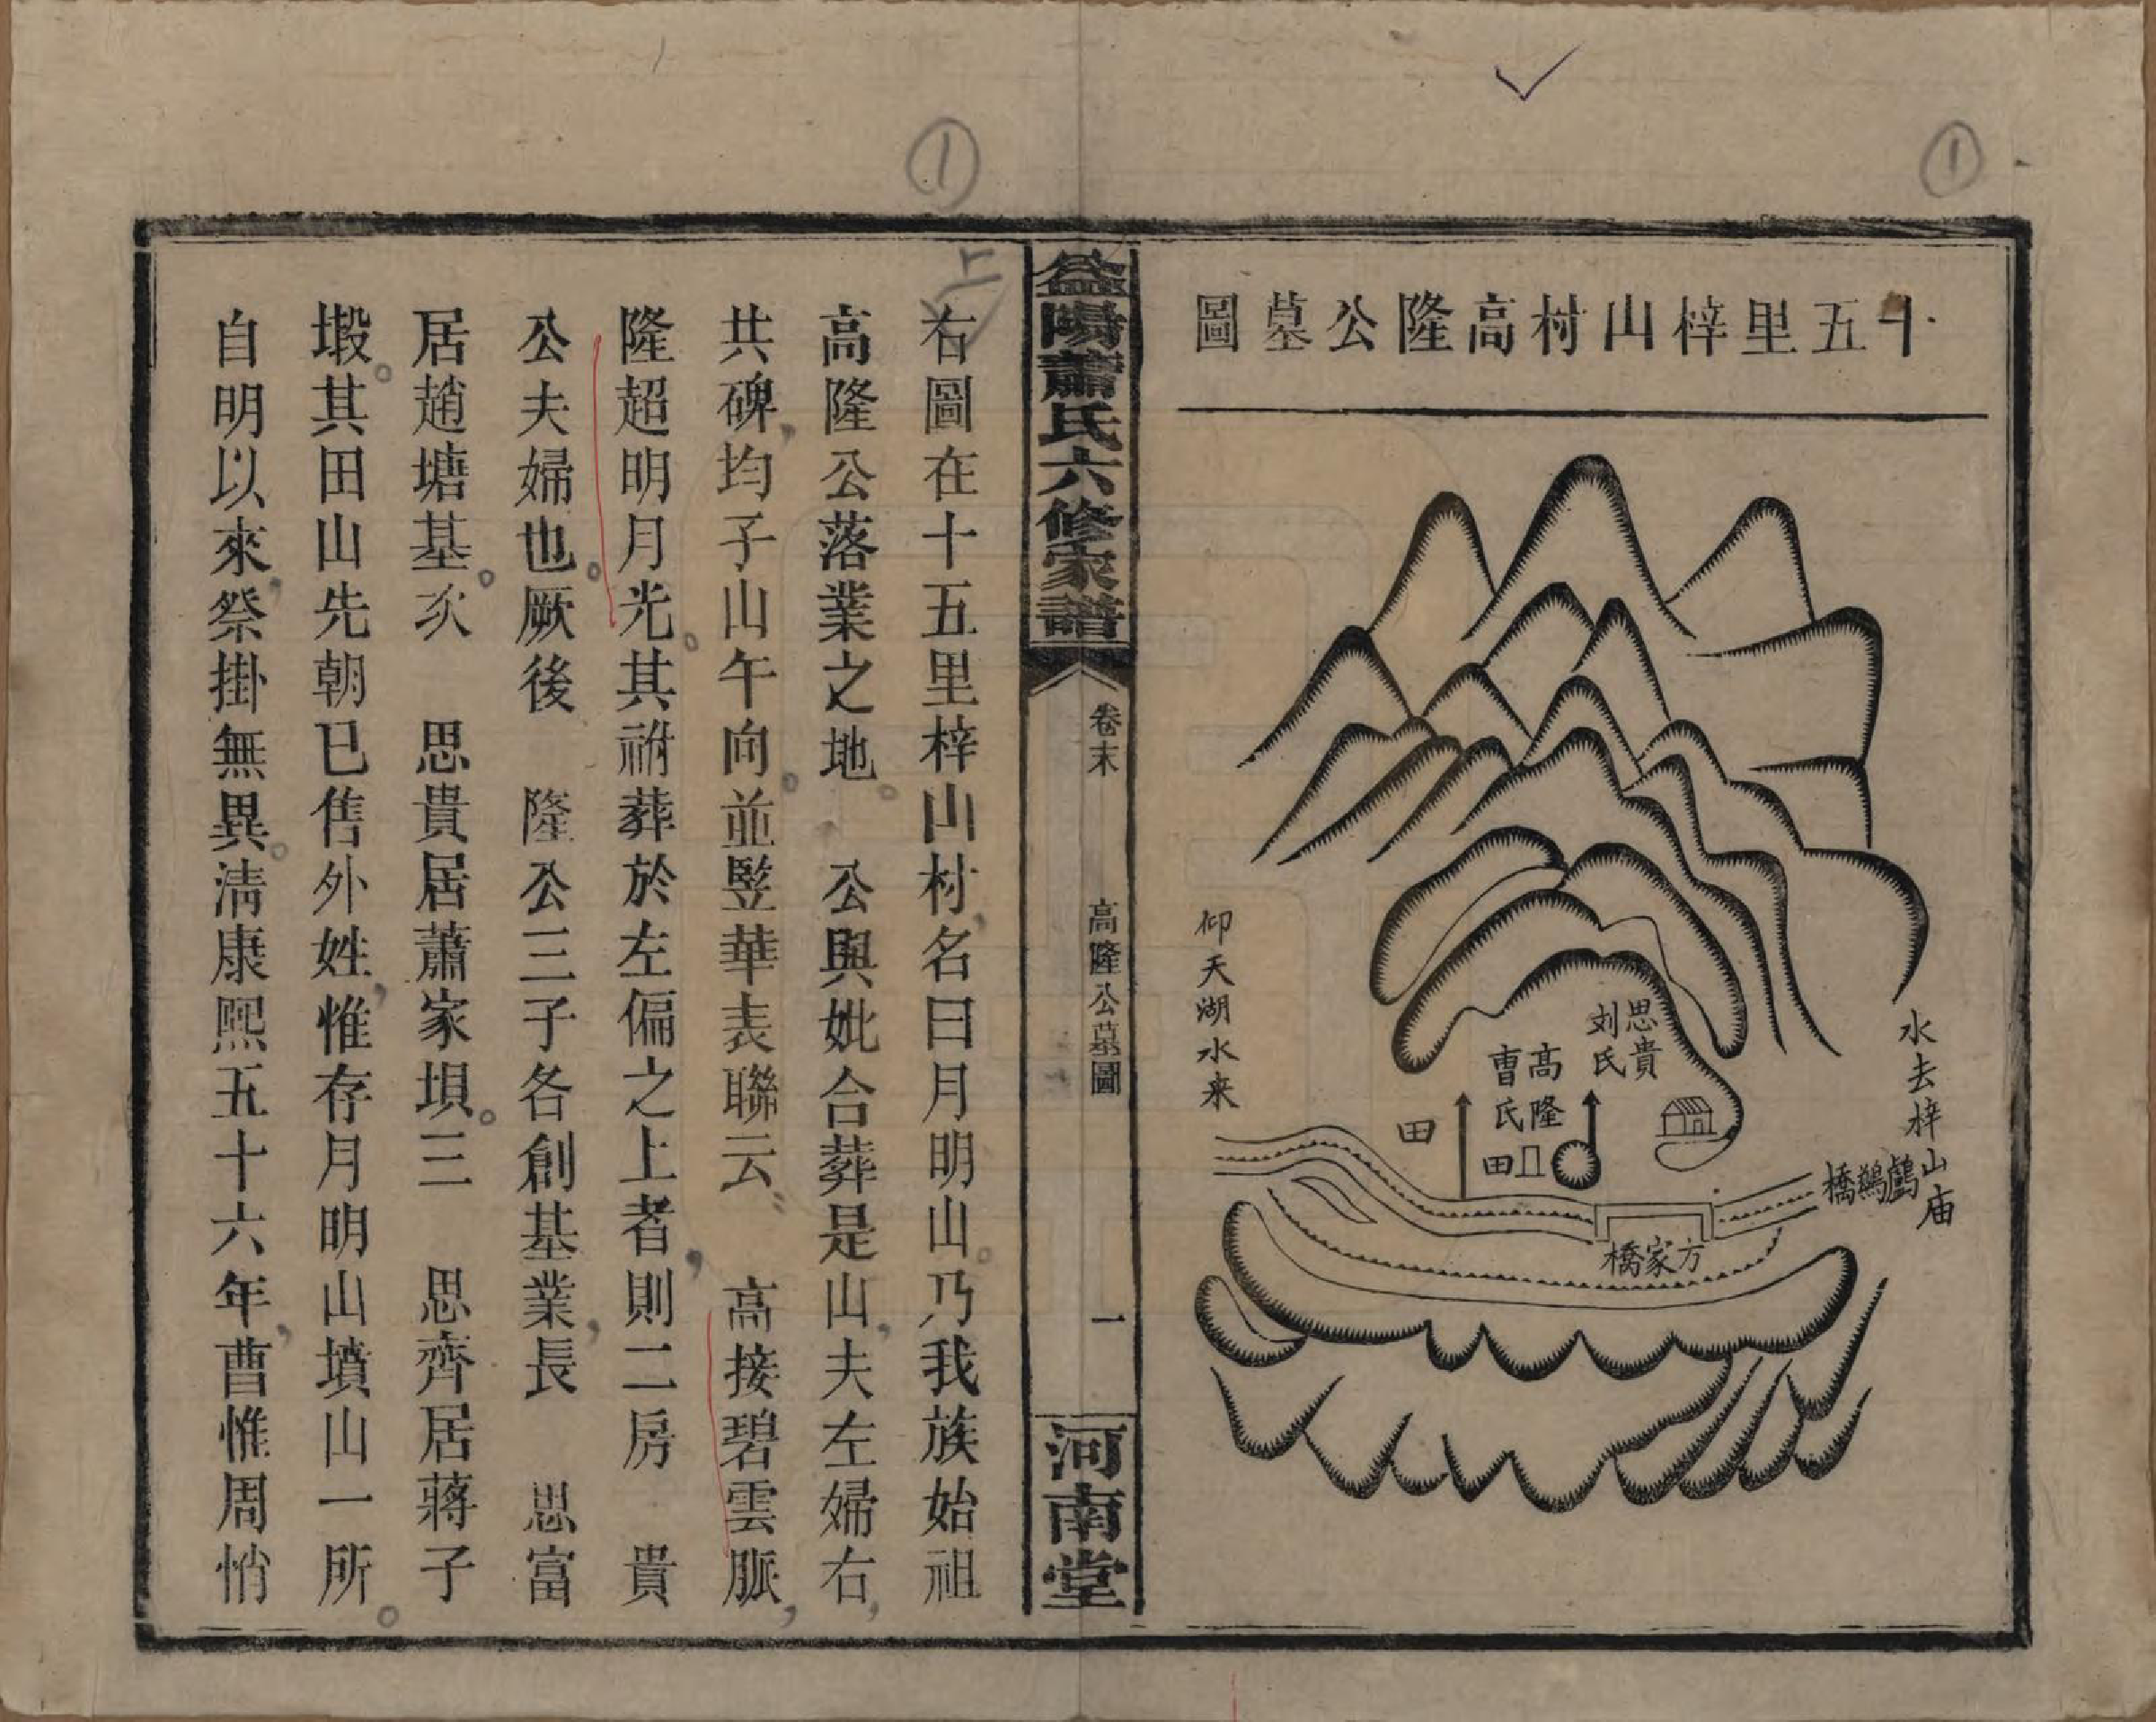 十五里梓山村高隆公墓圖
水去梓山庙
鸕鷀橋
思貴
刘氏
高隆
曹氏
田
田
方家橋
仰天湖水来
益陽蕭氏六修家譜
卷末
高隆公墓圖
一
河南堂
右圖在十五里梓山村，名曰月明山。乃我族始祖
高隆公落業之地。　公與妣合葬是山，夫左婦右，
共碑，均子山午向。並竪華表聯云：　高接碧雲脈，
隆超明月光。其祔葬於左偏之上者，則二房　貴
公夫婦也。厥後　隆公三子各創基業，長　思富
居趙塘基。次　思貴居蕭家垻。三　思齊居蔣子
塅。其田山先朝已售外姓，惟存月明山墳山一所。
自明以來，祭掛無異。清康熙五十六年，曹惟周悄
①
①
上